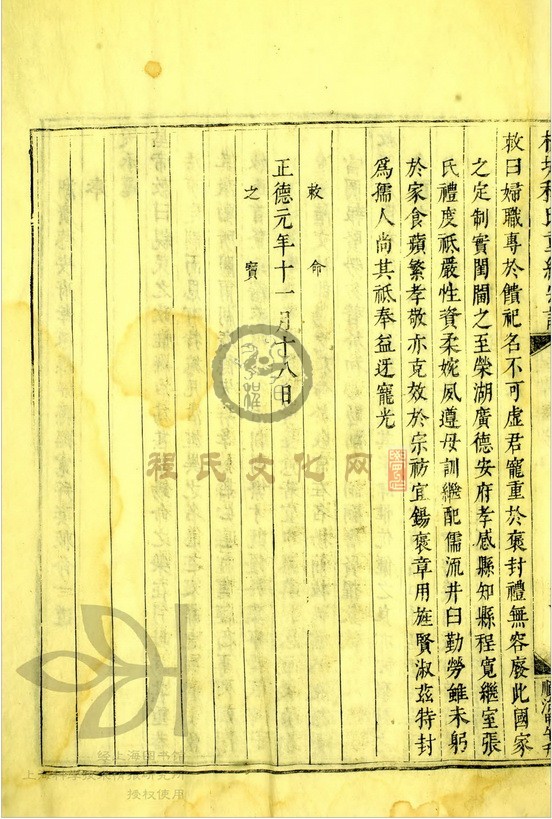 敕曰婦職專於饋祀名不可虛君寵重於褒封禮無容廢此國家
之定制實閨閫之至榮湖廣德安府孝感縣知縣程寬繼室張
氏禮度祗嚴性資柔婉夙遵母訓繼配儒流井臼勤勞雖未躬
於家食蘋蘩孝敬亦克效於宗祊宜錫褒章用旌賢淑茲特封
為孺人尚其祗奉益迓寵光
敕命
正德元年十一月十八日
之寶
程氏文化网
經上海图书馆
授权使用